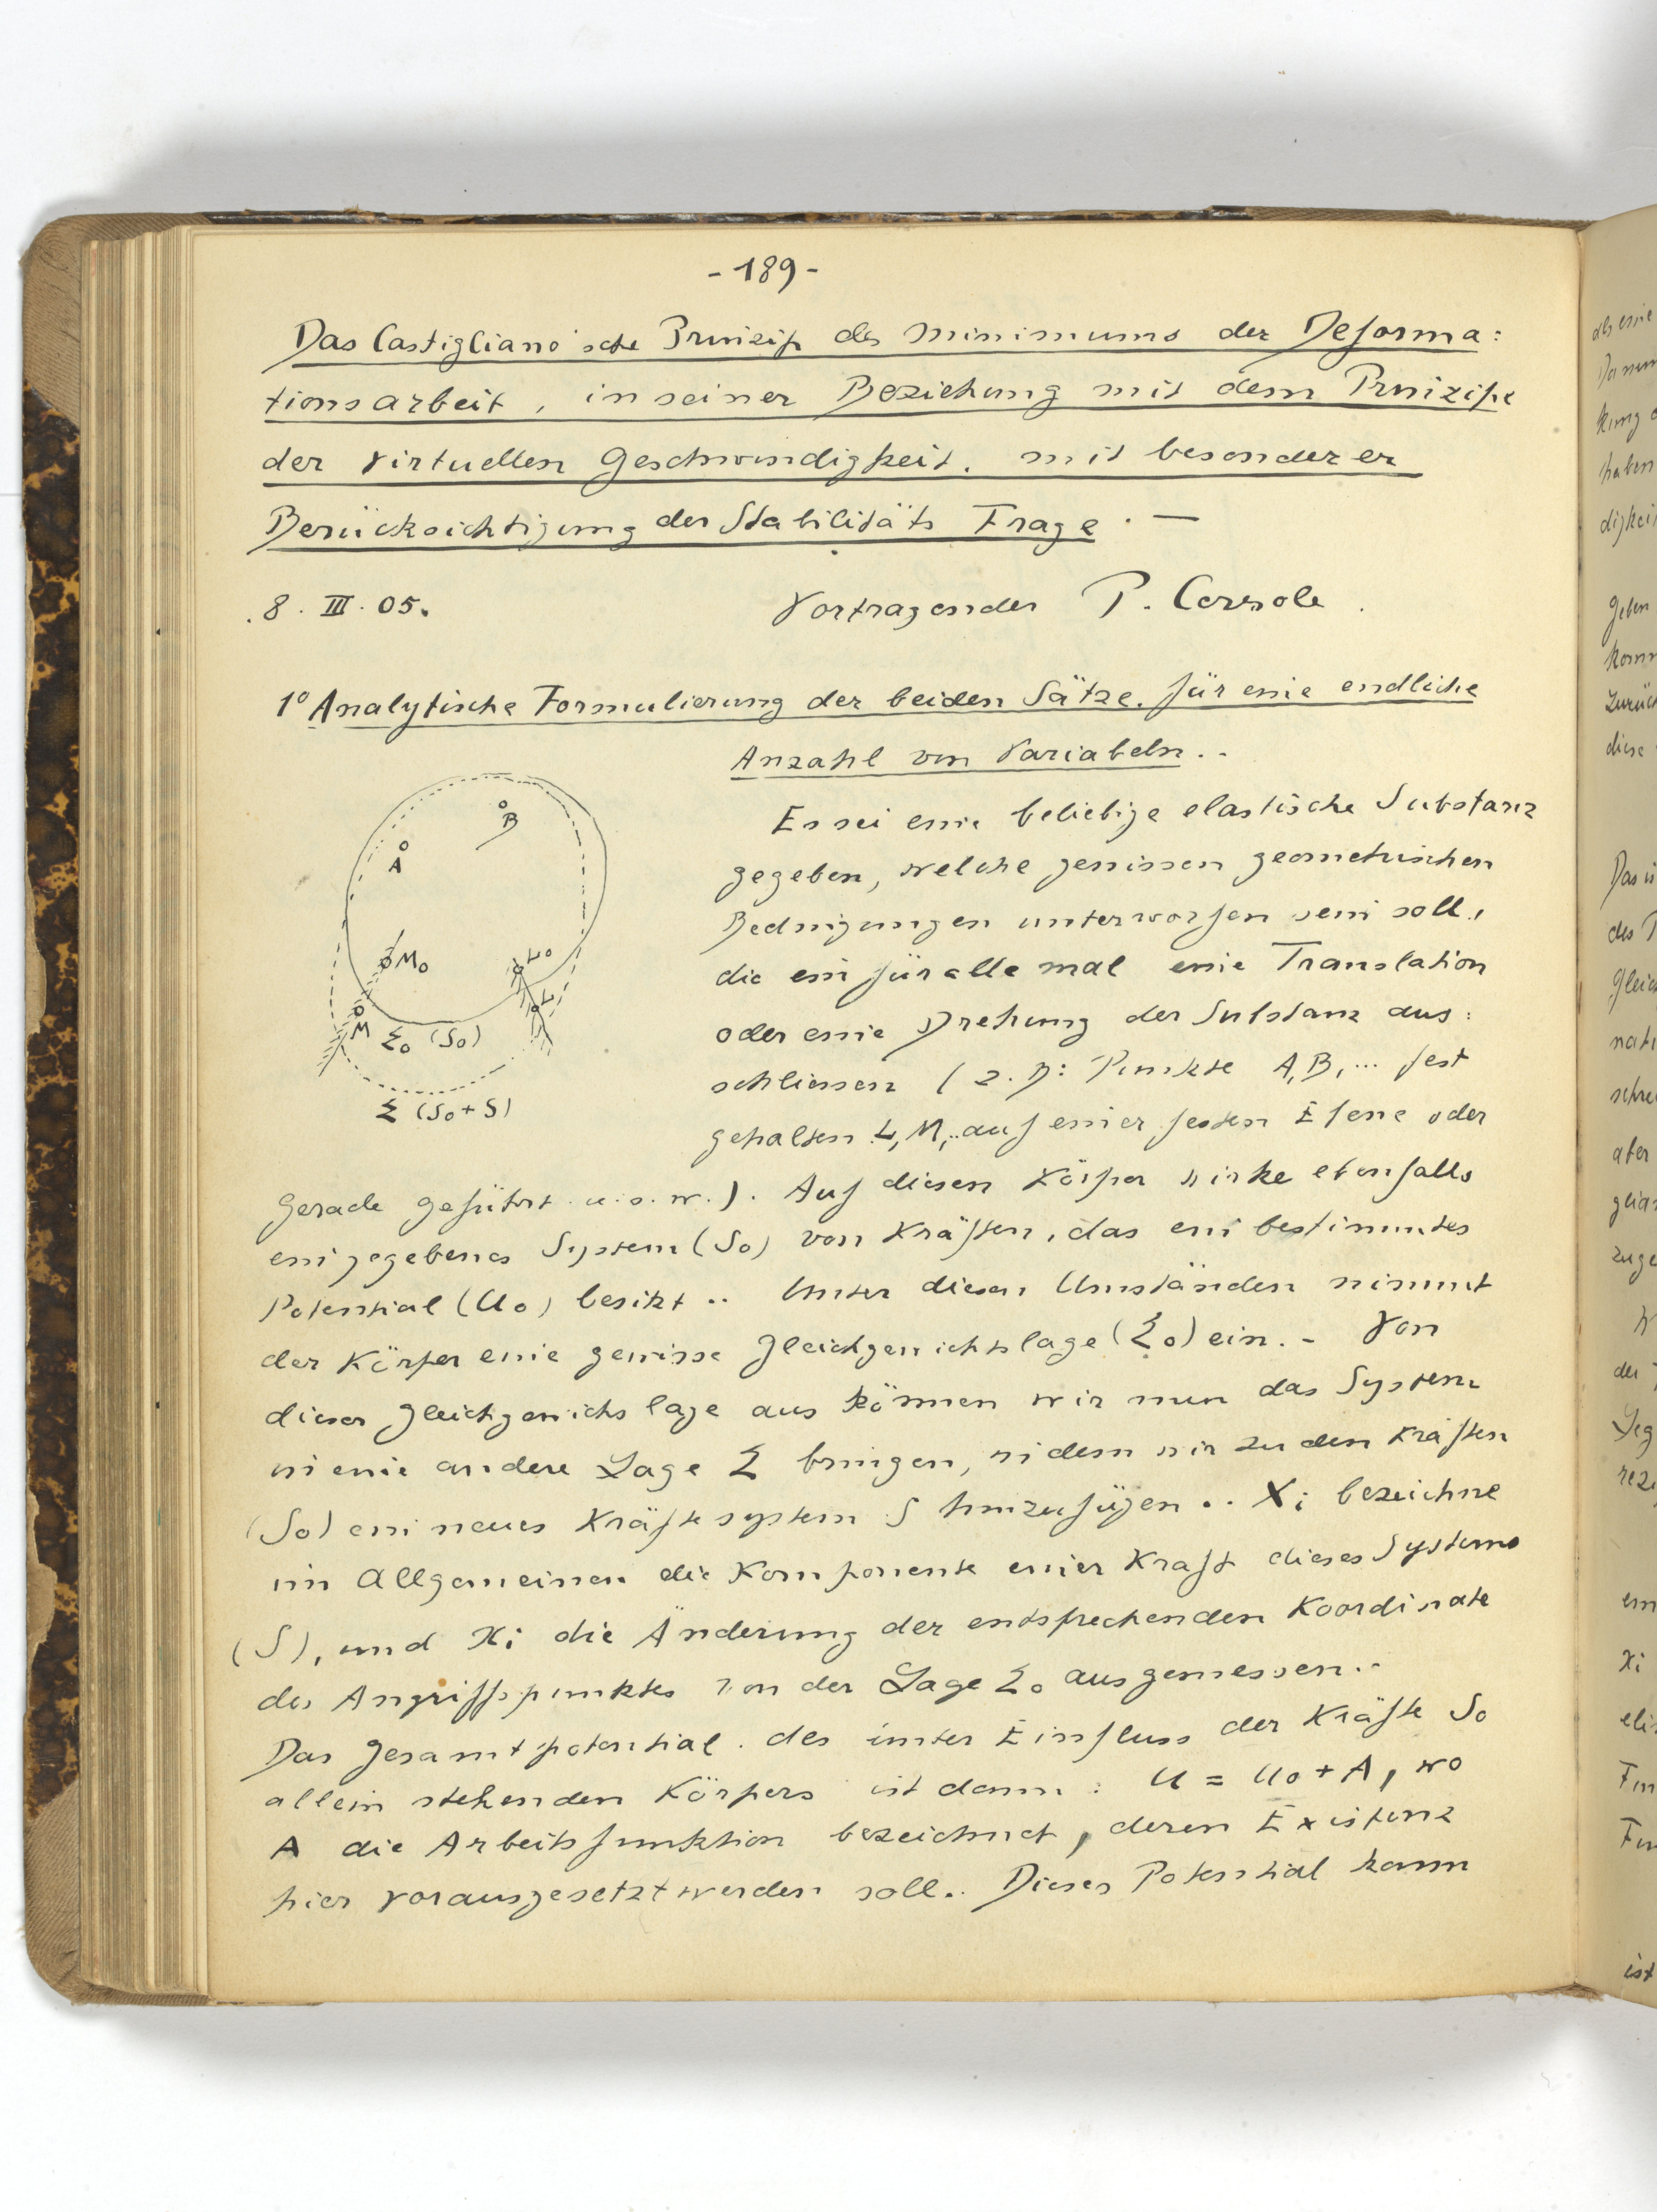 - 189 -
Das Castigliano'sche Prinzip des Minimums der Deforma:
tionsarbeit, in seiner Beziehung mit dem Prinzipe
der virtuellen Geschwindigkeit, mit besonderer
Berücksichtigung der Stabilitäts Frage. —
8. III. 05.
Vortragender P. Cerzole.
1° Analytische Formulierung der beiden Sätze, für eine endliche
Anzahl von Variabeln. -
B
A
M₀
L₀
L
M
Σ₀ (S₀)
Σ (S₀ + S)
Es sei eine beliebige elastische Substanz
gegeben, welche gewissen geometrischen
Bedingungen unterworfen sein soll,
die ein für alle mal eine Translation
oder eine Drehung der Substanz aus:
schliessen (z. B: Punkte A, B, ... fest
gehalten L, M, .. auf einer festen Ebene oder
Gerade geführt u. s. w.). Auf diesen Körper wirke ebenfalls
ein gegebenes System (S₀) von Kräften, das ein bestimmtes
Potential (U₀) besitzt .. Unter diesen Umständen nimmt
der Körper eine gewisse Gleichgewichtslage (Σ₀) ein. - Von
dieser Gleichgewichtslage aus können wir nun das System
in eine andere Lage Σ bringen, indem wir zu den Kräften
(S₀) ein neues Kräftesystem S hinzufügen .. Xi bezeichne
im Allgemeinen die Komponente einer Kraft dieses Systems
(S), und xi die Änderung der entsprechenden Koordinate
des Angriffspunktes von der Lage Σ₀ ausgemessen. -
Das Gesamtpotential des unter Einfluss der Kräfte S₀
allein stehenden Körpers ist dann : U = U₀ + A, wo
A die Arbeitsfunktion bezeichnet, deren Existenz
hier vorausgesetzt werden soll. Dieses Potential kann